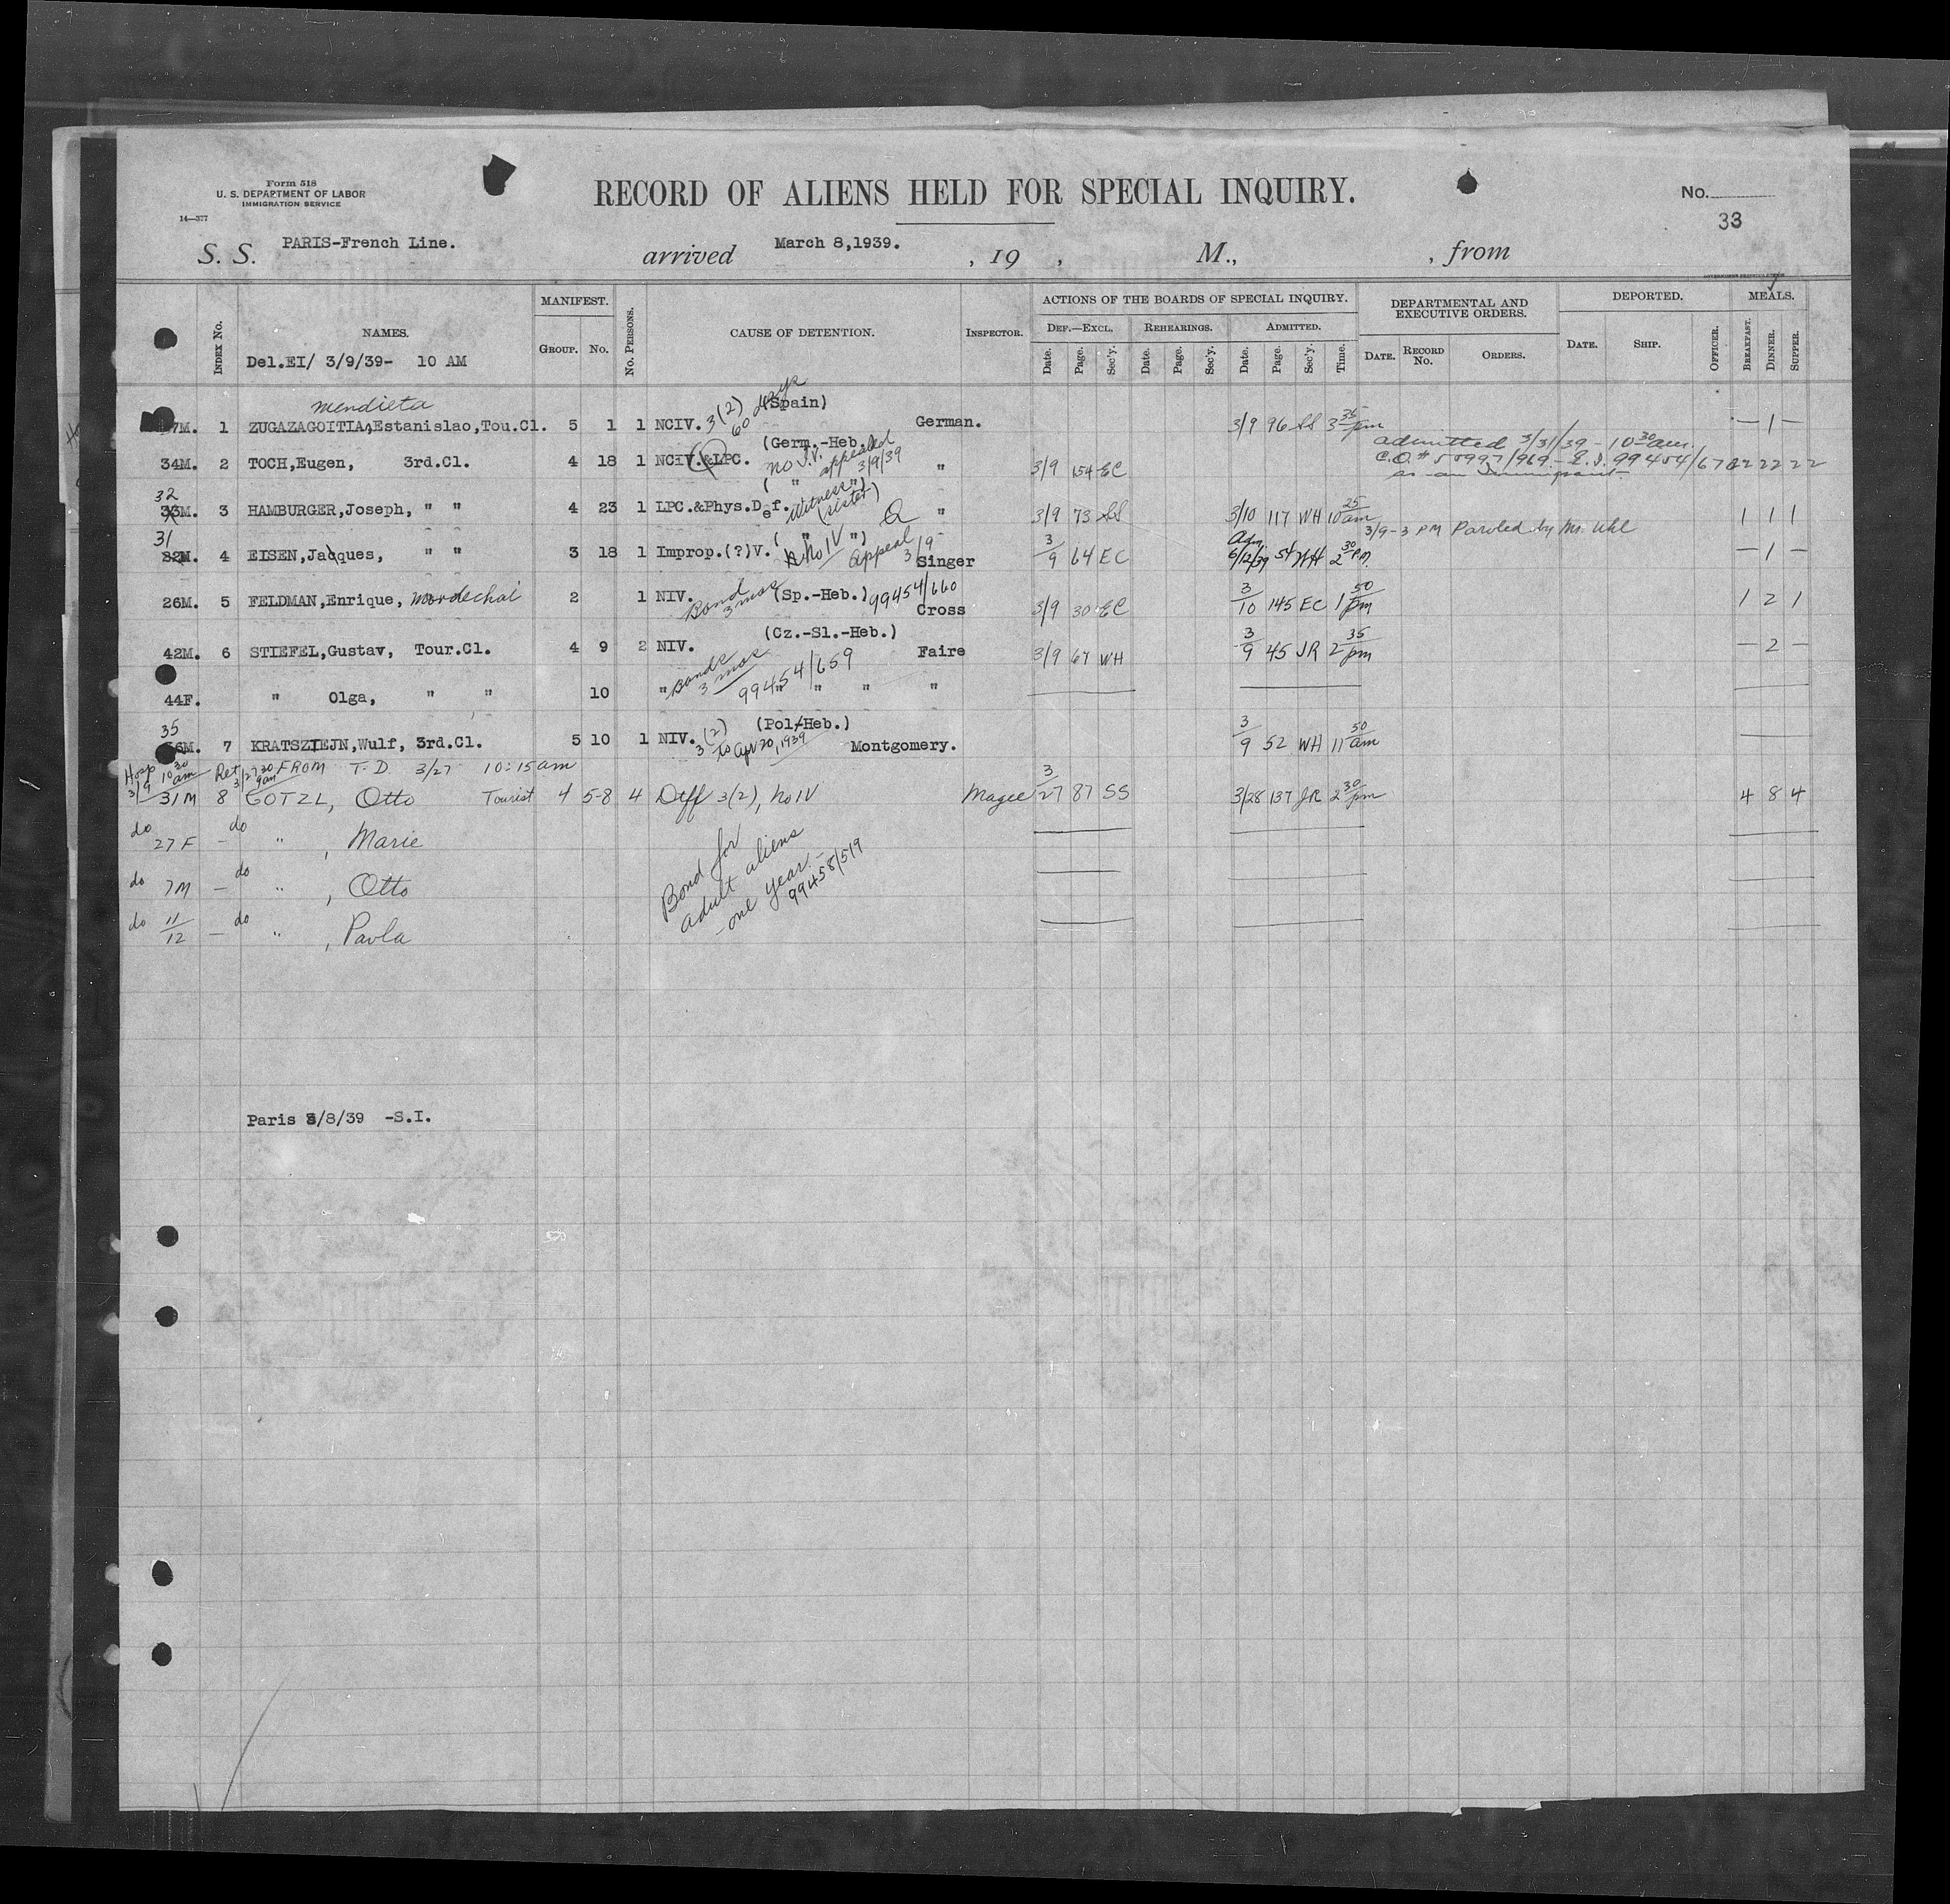 Form 518
U. S. DEPARTMENT OF LABOR
IMMIGRATION SERVICE
14—377
RECORD OF ALIENS HELD FOR SPECIAL INQUIRY.
No.
33
S. S. PARIS-French Line. arrived March 8,1939. , 19 , M., , from
INDEX No. NAMES. MANIFEST. GROUP. No. No. PERSONS. CAUSE OF DETENTION. INSPECTOR. ACTIONS OF THE BOARDS OF SPECIAL INQUIRY. DEF.—EXCL. Date. Page. Sec'y. REHEARINGS. Date. Page. Sec'y. ADMITTED. Date. Page. Sec'y. Time. DEPARTMENTAL AND EXECUTIVE ORDERS. DATE. RECORD No. ORDERS. DEPORTED. DATE. SHIP. OFFICER. MEALS. BREAKFAST. DINNER. SUPPER.
Del.EI/ 3/9/39- 10 AM
Mendieta
7M. 1 ZUGAZAGOITIA,Estanislao,Tou.Cl. 5 1 1 NCIV. 3(2) 60 days (Spain) German. 3/9 96 SS 3 35 pm — 1 —
34M. 2 TOCH,Eugen, 3rd.Cl. 4 18 1 NCIV.&LPC. (Germ.-Heb. no I.V. appealed 3/9/39 " 3/9 154 EC admitted 3/31/39 - 10 30 am.
C.O.# 55997/969 - E.I. 99454/67 22 22 22
as an immigrant
32
33M. 3 HAMBURGER,Joseph, " " 4 23 1 LPC.&Phys.Def. ( " ") Witness (sister) " 3/9 73 SS 3/10 117 WH 10 25 am 1 1 1
3/9 - 3 PM Paroled by Mr. Uhl
31
32M. 4 EISEN,Jacques, " " 3 18 1 Improp.(?)V. ( " ") No IV Appeal 3/9 Singer 3/9 64 EC Adm. 6/12/39 54 WH 2 30 PM. — 1 —
26M. 5 FELDMAN,Enrique, Mordechai 2 1 NIV. Bond 3 mos (Sp.-Heb.) 99454/660 Cross 3/9 30 EC 3/10 145 EC 1 50 pm 1 2 1
42M. 6 STIEFEL,Gustav, Tour.Cl. 4 9 2 NIV. (Cz.-Sl.-Heb.) Faire 3/9 67 WH 3/9 45 JR 2 35 pm — 2 —
44F. " Olga, " " 10 " Bonds 3 mos 99454/659 " " " "
35
36M. 7 KRATSZTEJN,Wulf, 3rd.Cl. 5 10 1 NIV. 3(2) to Apr 20, 1939 (Pol-Heb.) Montgomery. 3/9 52 WH 11 50 am
Hosp 3/9 10 30 am Ret 3/27 30 9am FROM T.D. 3/27 10:15am
31M 8 GOTZL, Otto Tourist 4 5-8 4 Dtff 3(2), no IV Magee 3/27 87 SS 3/28 137 JR 2 30 pm 4 8 4
do 27 F — do " , Marie
do 7M — do " , Otto
do 11/12 — do " , Pavla
Bond for
adult aliens
- one year. -
99458/519
Paris 3/8/39 -S.I.